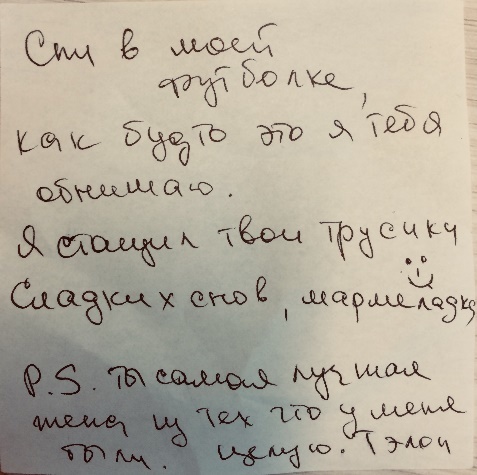 Спи в моей
футболке,
как будто это я тебя
обнимаю.
Я стащил твои трусики
Сладких снов, мармеладка
P.S. ты самая лучшая
жена из тех что у меня
были. Целую.